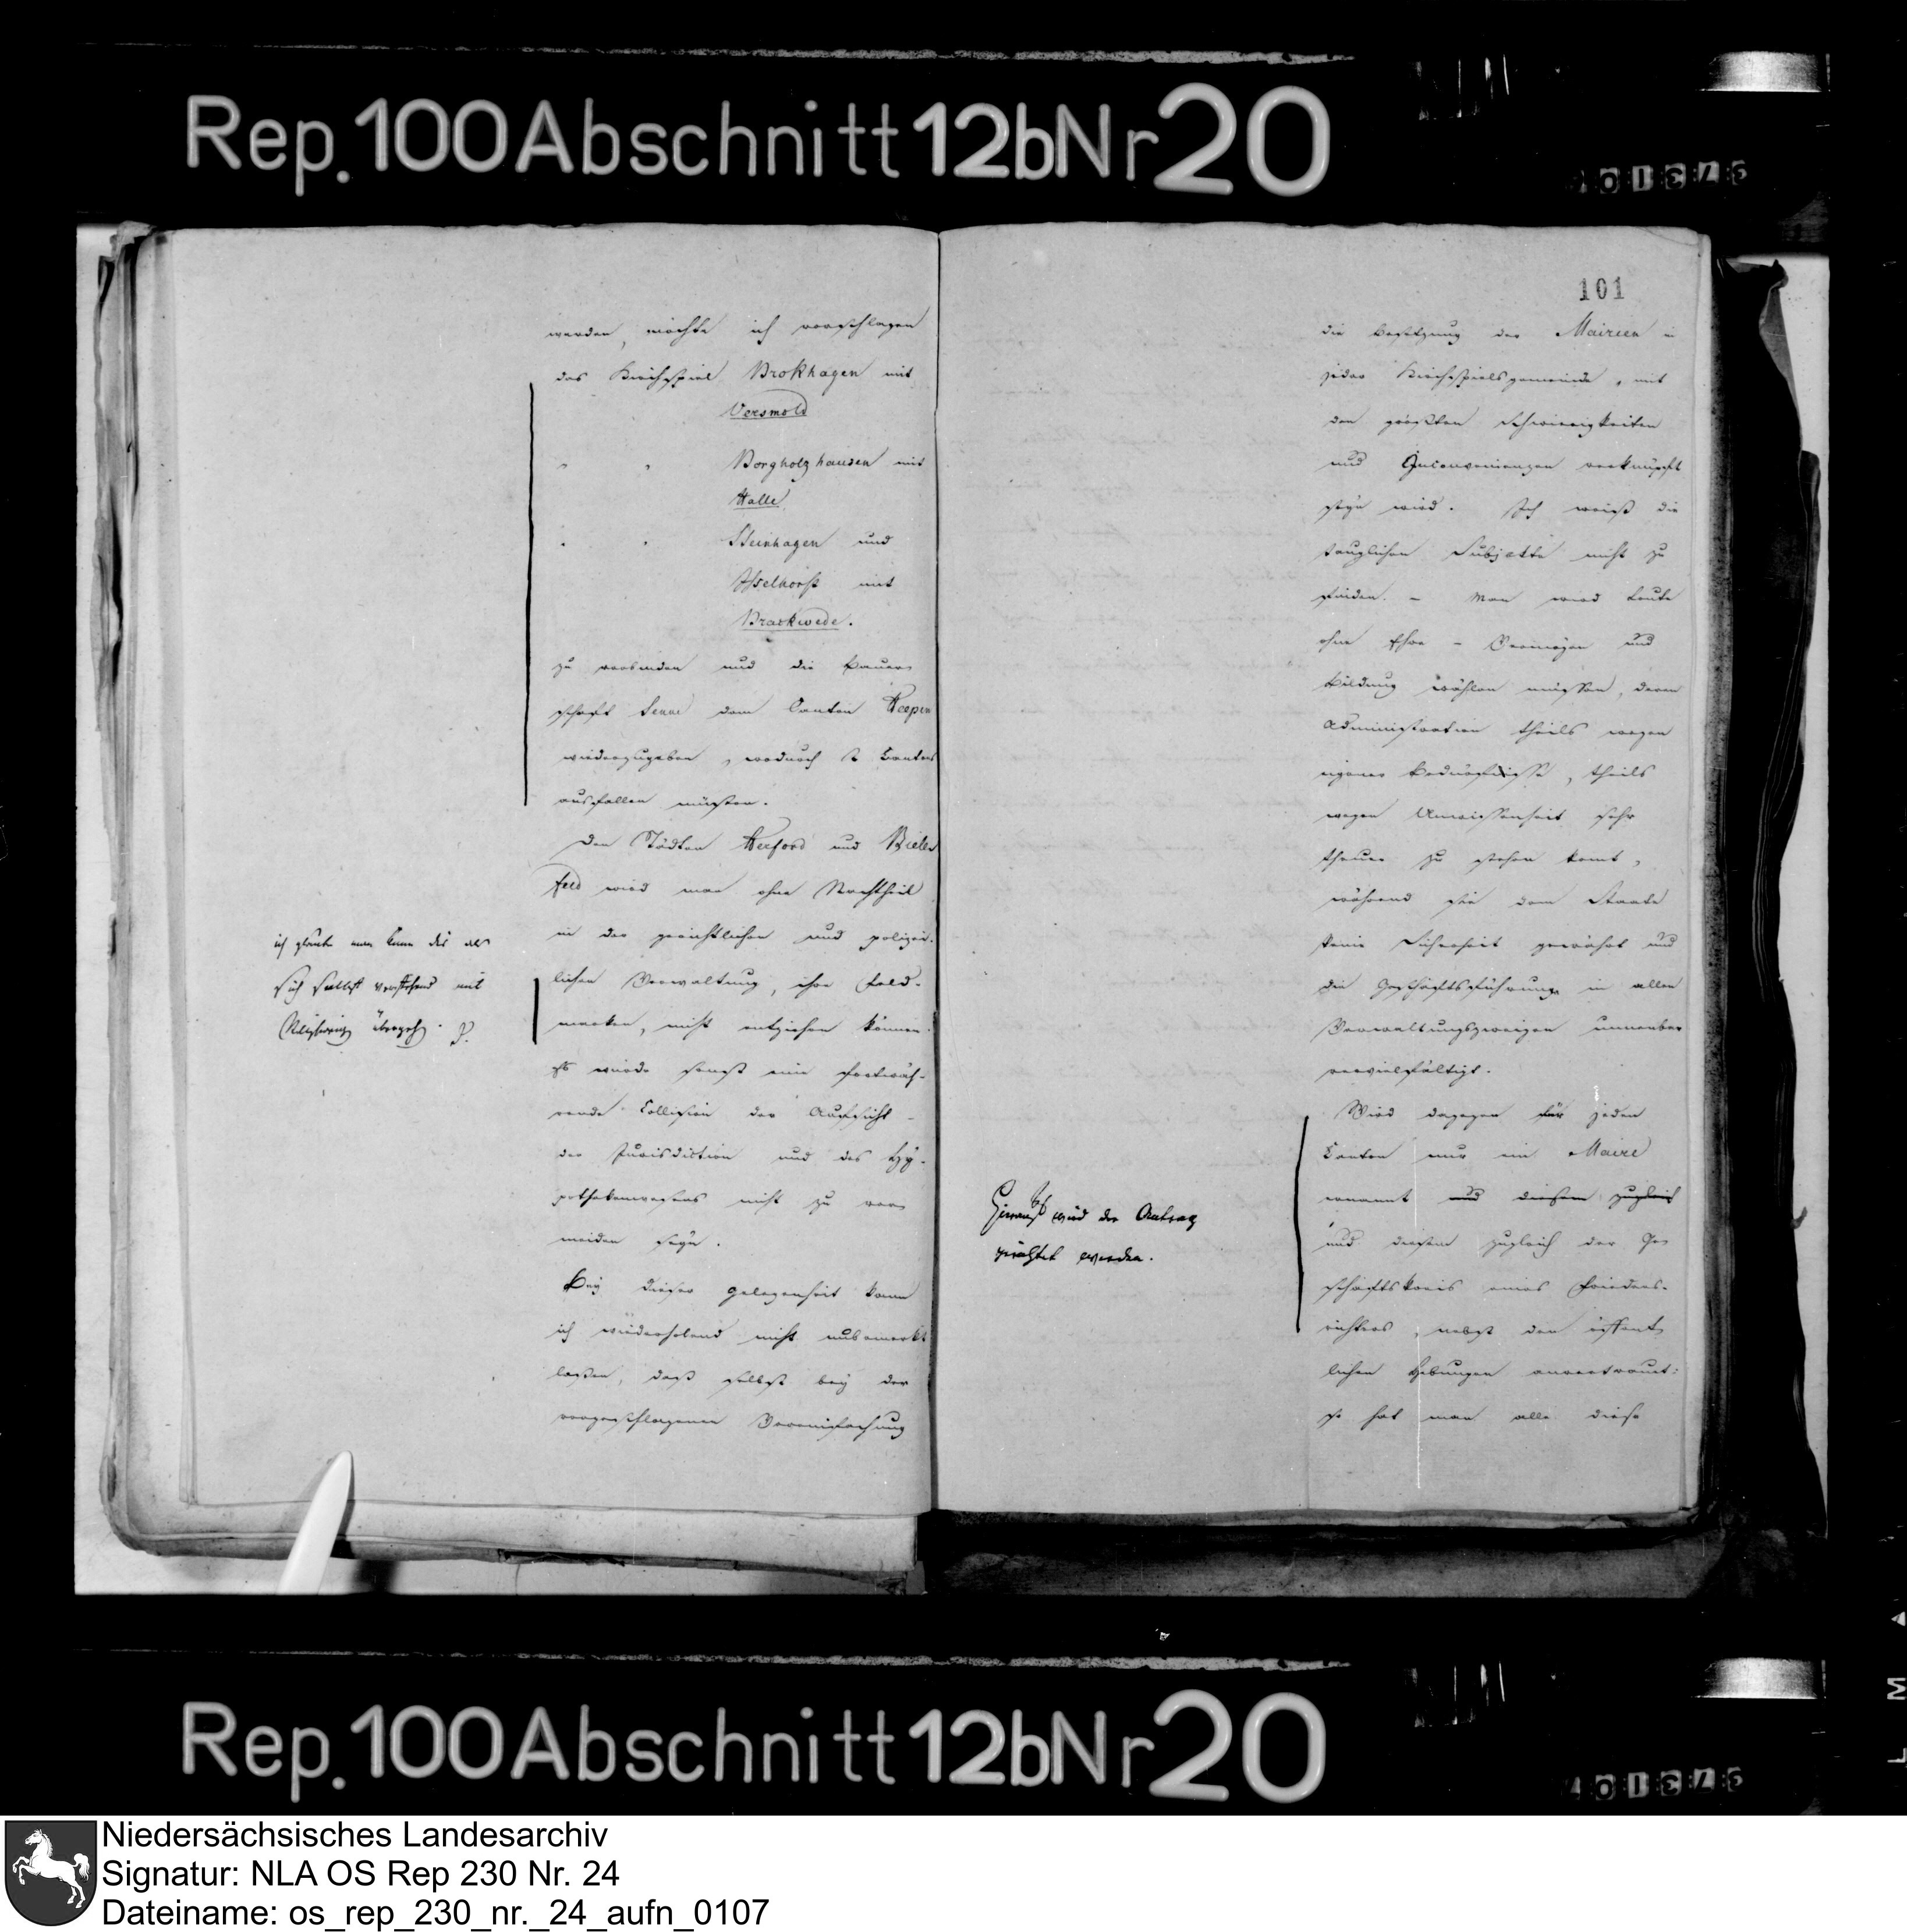 Rep. 100 Abschnitt 12b Nr 20
werden, möchte ich vorschlagen
das Kirchspiel Brokhagen mit
Versmold
" " Borgholzhausen mit
Halle
" " Steinhagen und
Isselhorst mit
Brackwede.
zu verbinden und die Bauer-
schaft Senne dem Canton Heepen
wiederzugeben, wodurch Cantons
ausfallen müssten.
Den Städten Herford und Biele-
feld wird man ohne Nachtheil
in der gerichtlichen und polizei-
lichen Verwaltung, ihre Feld-
marken, nicht entziehen können.
Es würde sonst eine fortwäh-
rende Collision der Aufsicht -
der Jurisdiction und des Hy-
pothekenwesens nicht zu ver-
meiden seyn.
Bey dieser Gelegenheit kann
ich wiederholend nicht unbemerkt
laßen, daß selbst bey der
vorgeschlagenen Vereinfachung
ich glaube man kann dies als
sich selbst verstehend mit
übergehen. P.
101
die Besetzung der Mairien in
jeder Kirchspielsgemeinde, mit
den größten Schwierigkeiten
und Inconvenienzen verknüpft
seyn wird. Ich weiß die
tauglichen Subjecte nicht zu
finden. - Man wird Leute
ohne Ehre - Vermögen und
Bildung wählen müssen, deren
Administration theils wegen
eigener Bedürfnisse, theils
wegen Unwissenheit sehr
theuer zu stehen komt,
während sie dem Staate
keine Sicherheit gewährt und
die Geschäftsführung in allen
Verwaltungszweigen unnenbar
vervielfältigt.
Wird dagegen für jeden
Canton nur ein Maire
ernannt und diesem zugleich
und diesem zugleich der Ge-
schäftskreis eines Friedens-
richters, nebst den öffent-
lichen Hebungen anvertraut:
so hat man alle diese
Hierauf wird der Antrag
gerichtet werden.
Rep. 100 Abschnitt 12b Nr 20
Niedersächsisches Landesarchiv
Signatur: NLA OS Rep 230 Nr. 24
Dateiname: os_rep_230_nr._24_aufn_0107